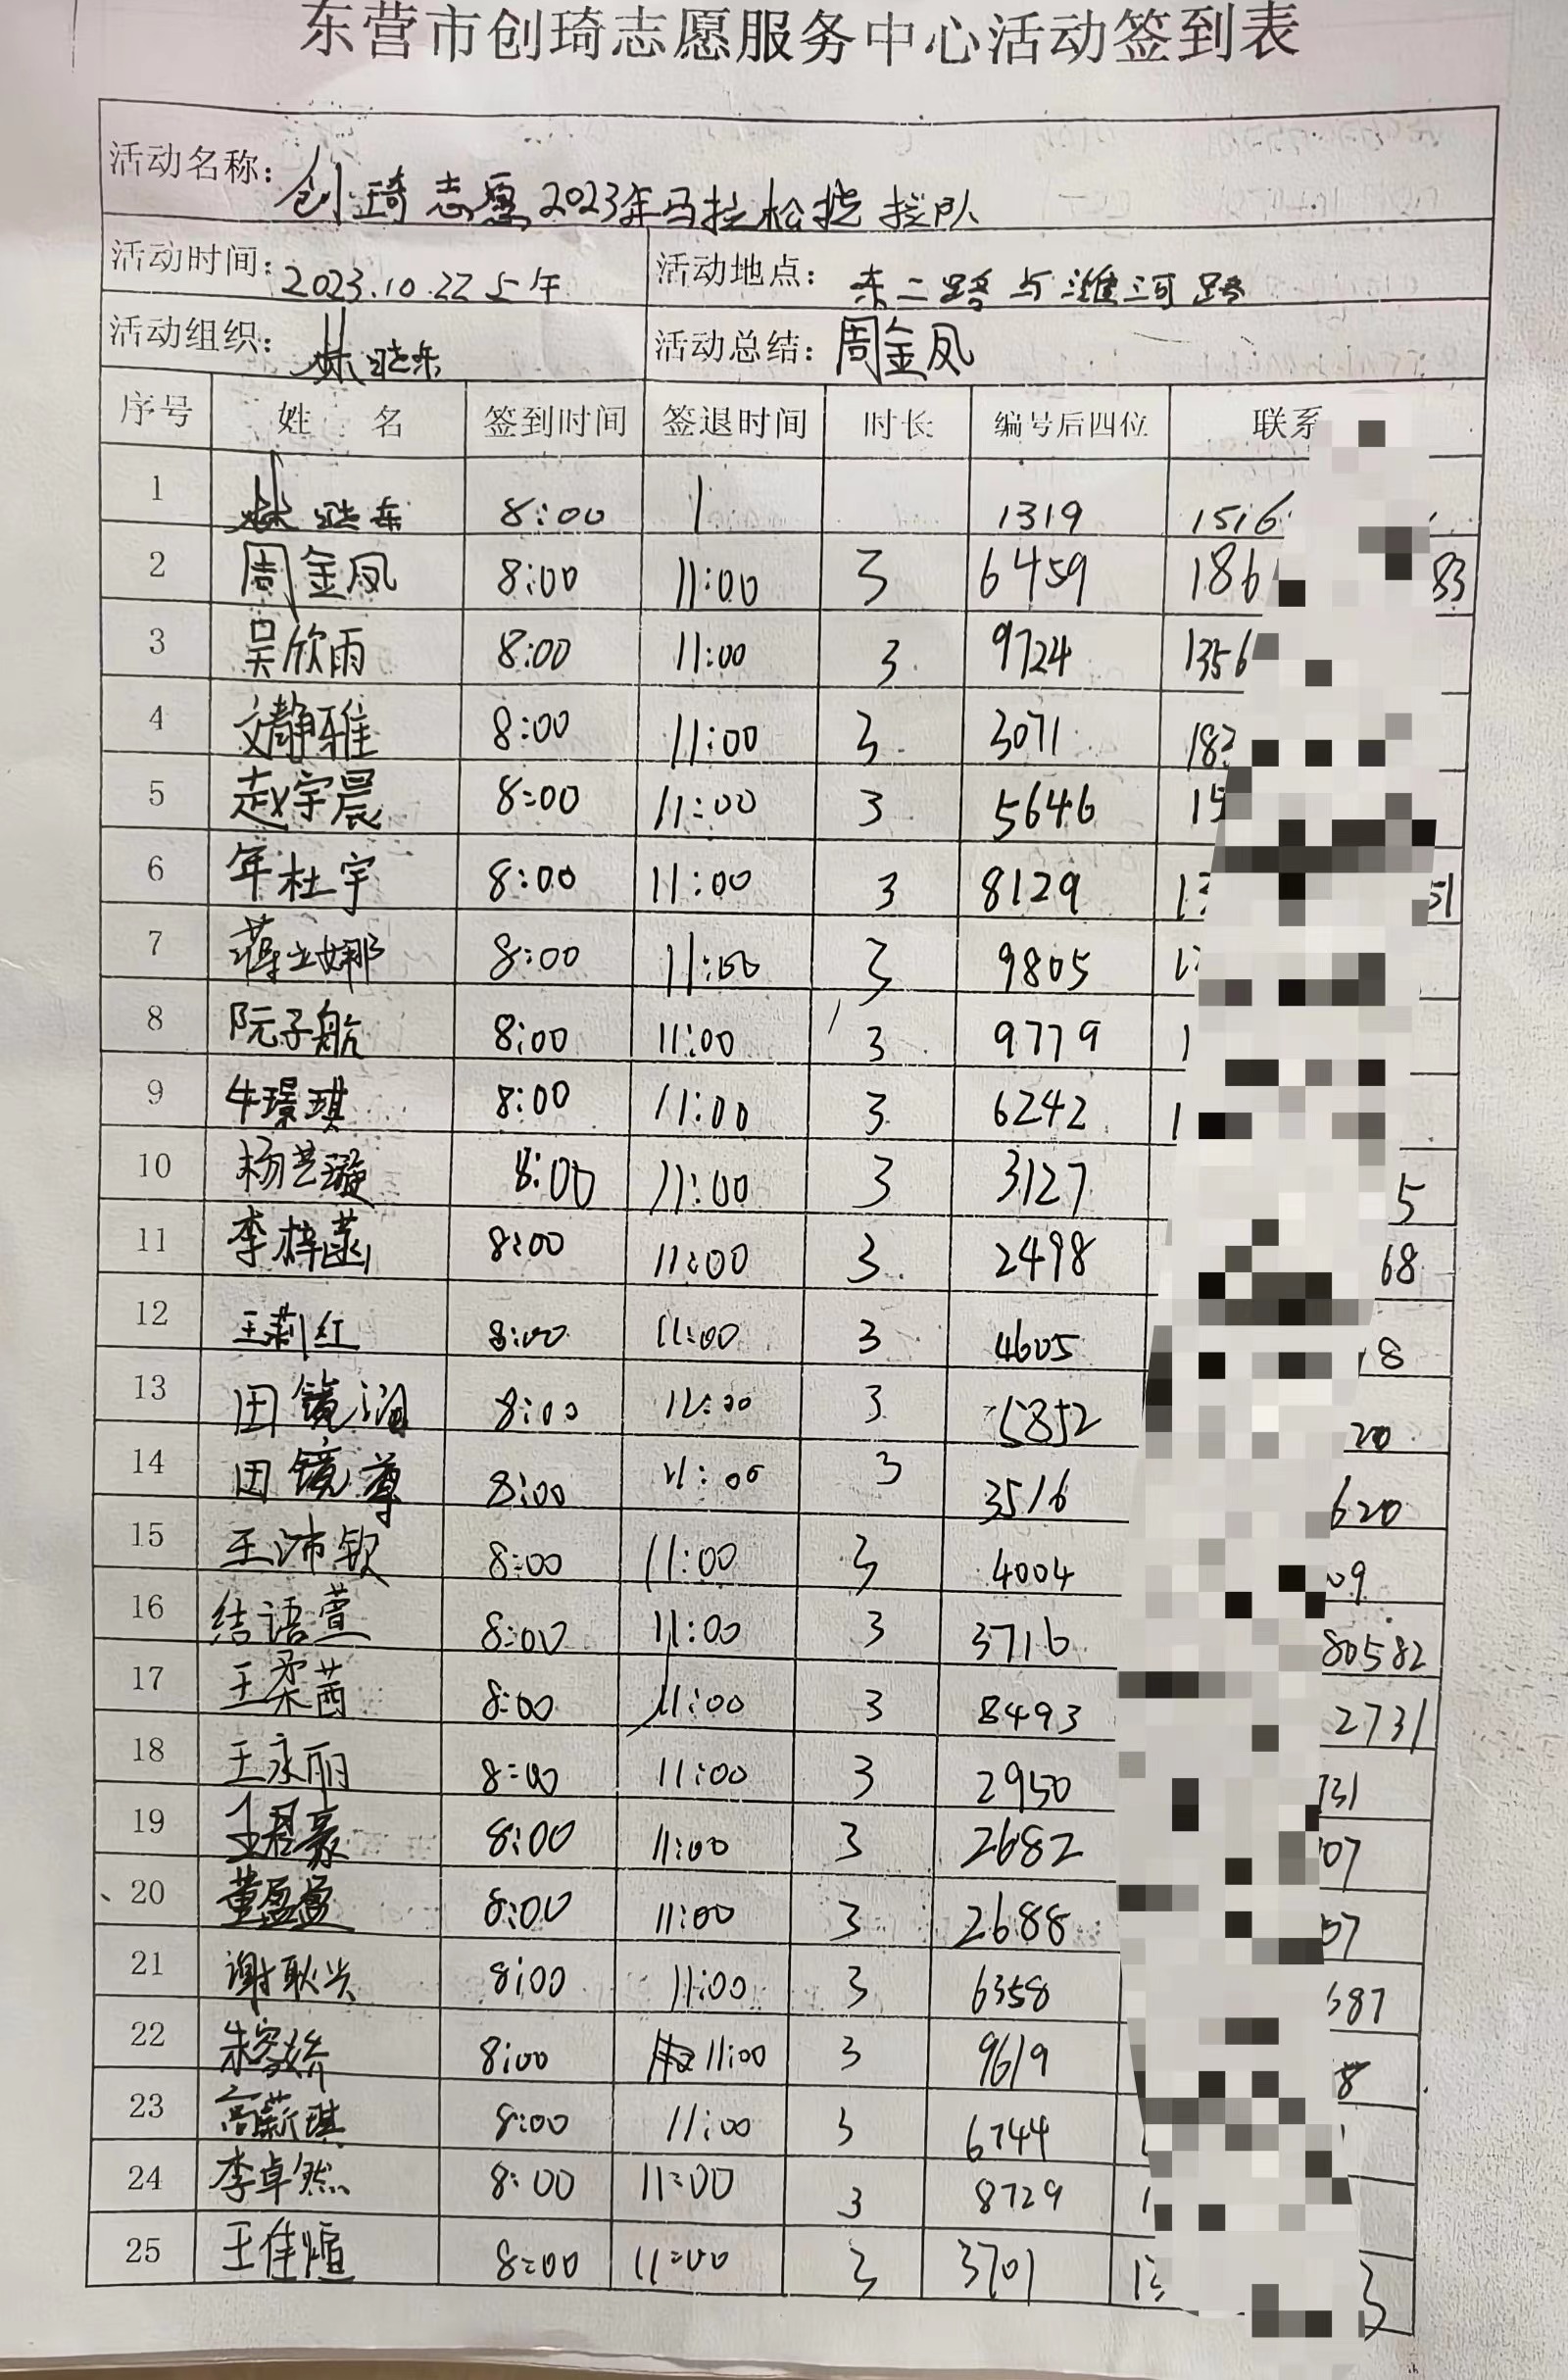 东营市创琦志愿服务中心活动签到表
活动名称: 创琦志愿2023年马拉松挠挠队
活动时间: 2023.10.22上午 活动地点: 东二路与潍河路
活动组织: 林晓东 活动总结: 周金凤
序号 姓 名 签到时间 签退时间 时长 编号后四位 联系
1 林晓东 8:00 1319 1516
2 周金凤 8:00 11:00 3 6459 186 83
3 吴欣雨 8:00 11:00 3 9724 1356
4 文静雅 8:00 11:00 3 3071 182
5 赵宇晨 8:00 11:00 3 5646 15
6 年杜宇 8:00 11:00 3 8129 13 51
7 蒋立娜 8:00 11:00 3 9805 1
8 阮子航 8:00 11:00 3 9779 1
9 牛璟琪 8:00 11:00 3 6242 1
10 杨艺璇 8:00 11:00 3 3127 5
11 李梓菡 8:00 11:00 3 2498 68
12 王莉红 8:00 11:00 3 4605 8
13 田镜润 8:00 11:00 3 5852 20
14 田镜尊 8:00 11:00 3 3516 620
15 王沛钦 8:00 11:00 3 4004 09
16 结语萱 8:00 11:00 3 3716 80582
17 王柔茜 8:00 11:00 3 8493 2731
18 王永丽 8:00 11:00 3 2950 731
19 王君豪 8:00 11:00 3 2682 07
20 董盈盈 8:00 11:00 3 2688 07
21 谢耿兴 8:00 11:00 3 6358 687
22 朱容娇 8:00 11:00 3 9619 8
23 高薪琪 8:00 11:00 3 6744
24 李卓然 8:00 11:00 3 8729 1
25 王佳煊 8:00 11:00 3 3701 13 3